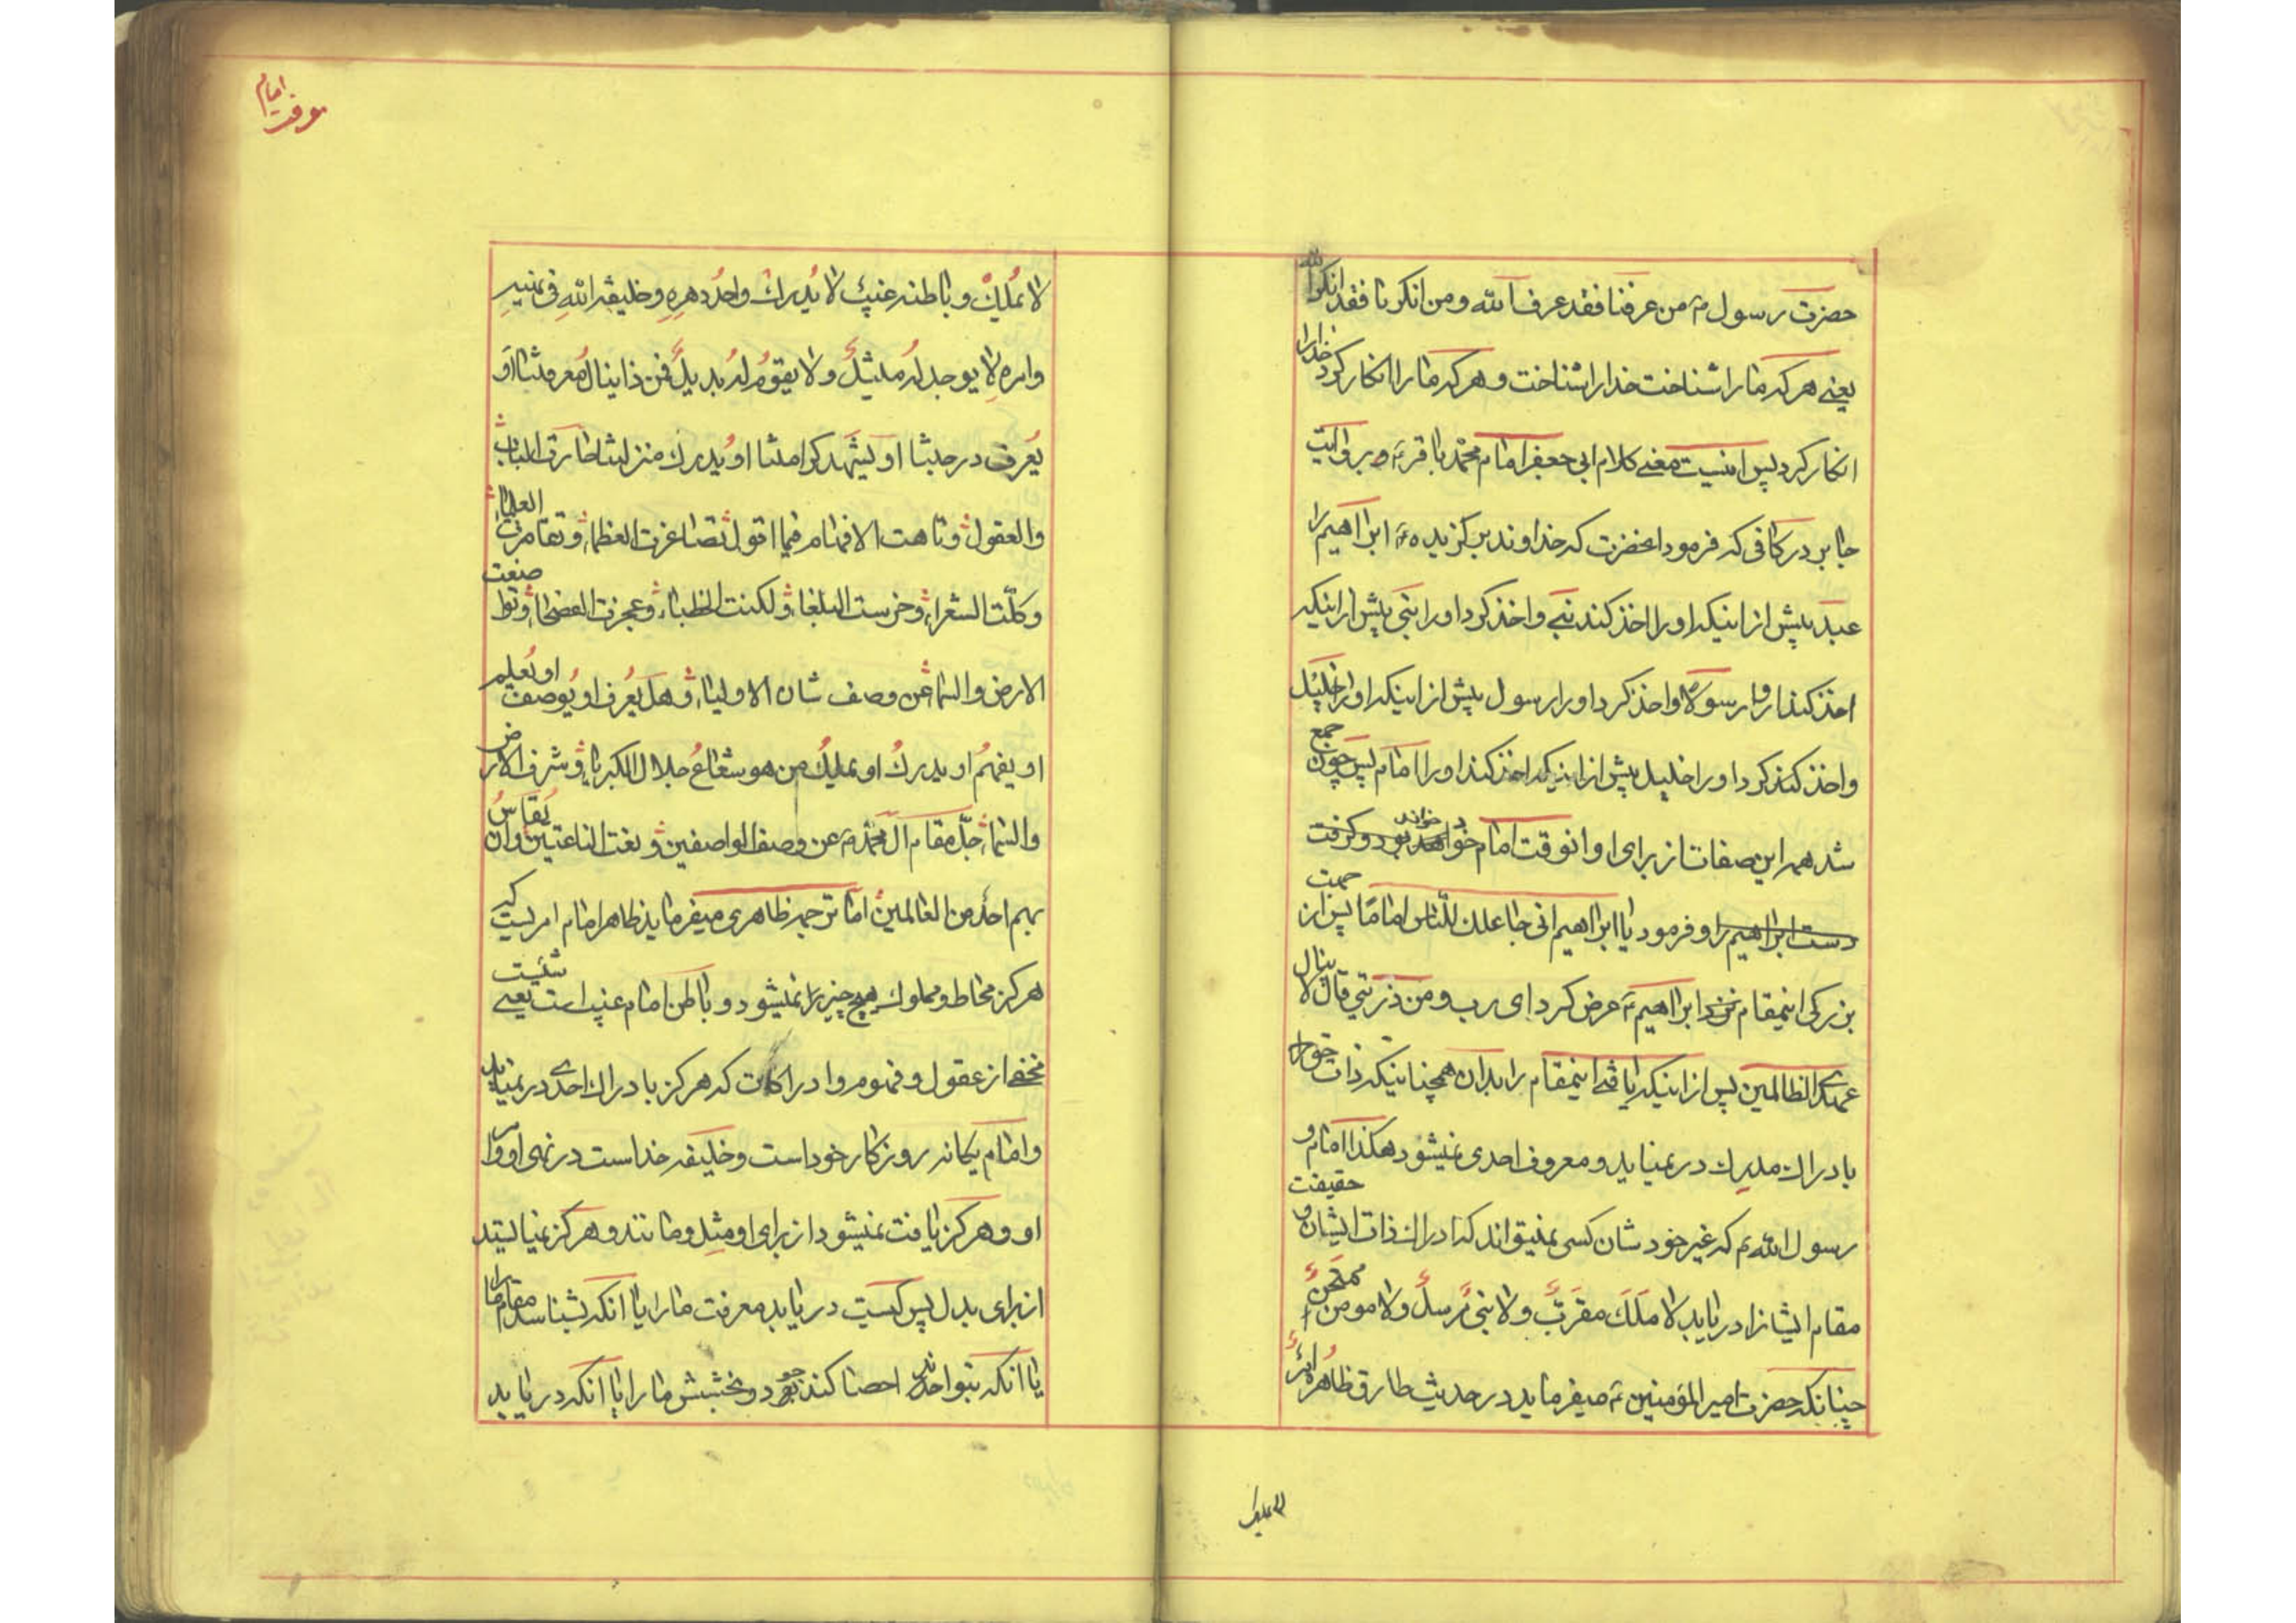 حضرت رسول ص من عرفنا فقد عرف الله ومن انكرنا فقد انكر الله
يعنے هر كه ما را شناخت خدا را شناخت و هر كه ما را انكار كرد خدا را
انكار كرد پس اينست معنے كلام ابى جعفر امام محمد باقر ع و بروايت
جابر در كافى كه فرمود انحضرت كه خداوند بر كزيده ابراهيم را
عبد پيش از اينكه او را اخذ كند نبے و اخذ كرد او را نبى پيش از اينكه
اخذ كند او را رسولا و اخذ كرد او را رسول پيش از اينكه او را خليل
و اخذ كند كرد او را خليل پيش از اينكه اخذ كند او را امام پس چون جمع
شد همه اين صفات از براى او انوقت امام خواند و كرفت
دست ابراهيم را و فرمود يا ابراهيم انى جاعلك للناس اماما پس از جهت
بزركى اينمقام نزد ابراهيم ع عرض كرد اى رب و من ذريتي قال لا ينال
عهدى الظالمين پس از اينكه يافتے اينمقام را بدان همچنانيكه ذات حق را
بادراك مدرك در نميايد و معروف احدى نميشود هكذا امام و
رسول الله ص كه غير خودشان كسى نميتواند كه ادراك ذات ايشان و حقيقت
مقام ايشانرا دريابد لا ملك مقرب ولا نبى مرسل ولا مومن ممتحن
چنانكه حضرت امير المؤمنين ع ميفرمايد در حديث طارق ظاهره امر
لا يملك
معرفت امام
لا يملك و باطنه غيب لا يدرك واحد دهره و خليفة الله فى نهيه
وامره لا يوجد له مثيل ولا يقوم له بديل فمن ذا ينال معرفتنا او
يعرف درجتنا او يشهد كرامتنا او يدرك منزلتنا حارت الالباب
والعقول وتاهت الافهام فيما اقول تصاغرت العظماء وتقاصرت العلماء
وكلت الشعراء وخرست البلغاء ولكنت الخطباء وعجزت الفصحاء وتواضعت
الارض والسماء عن وصف شان الاولياء وهل يعرف او يوصف او يعلم
او يفهم او يدرك او يملك من هو شعاع جلال الكبرياء وشرف الارض
والسماء جل مقام آل محمد ص عن وصف الواصفين ونعت الناعتين وان يقاس
بهم احد من العالمين اما ترجمه ظاهرى ميفرمايد ظاهر امام امريست كه
هركز محاط و مملوك هيچ چيز را نميشود و باطن امام غيب است يعنے
مخفے از عقول و فهوم و ادراكات كه هركز بادراك احدى در نميايد
و امام يكانه روزكار خود است و خليفه خداست در نهى او و امر
او و هركز يافت نميشود از براى او مثل و مانند و هركز نميايستد
از براى بدل پس كيست دريابد معرفت ما را يا انكه بشناسد مقام ما را
يا انكه بتواند احصا كند جود و بخشش ما را يا انكه دريابد